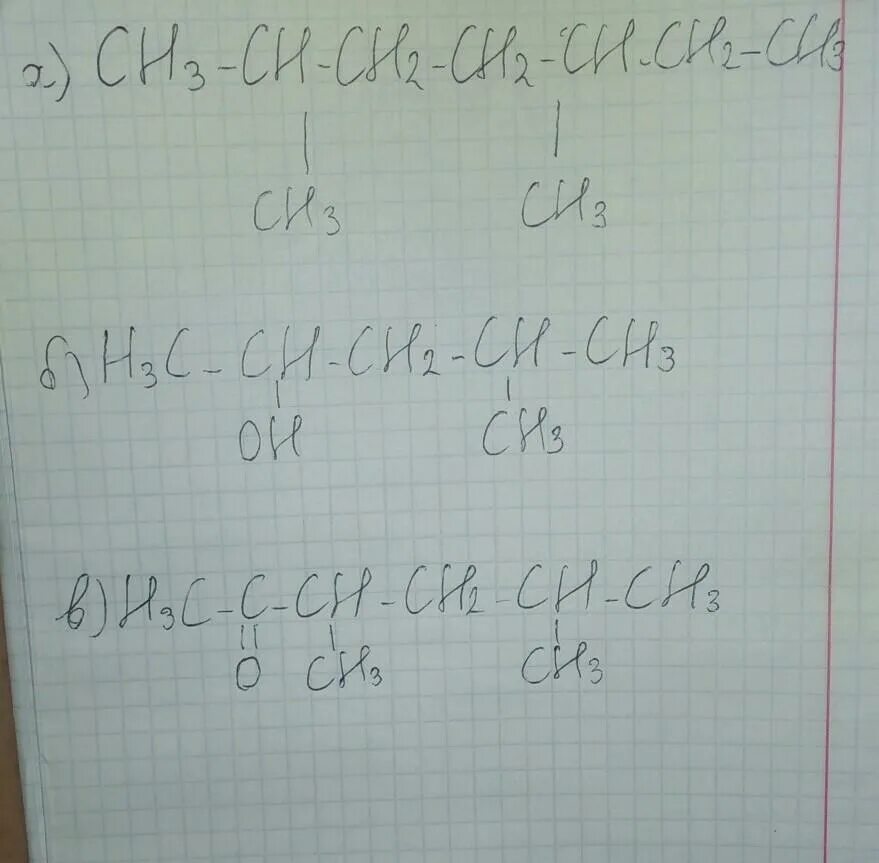 а) CH3-CH-CH2-CH2-CH-CH2-CH3
| |
CH3 CH3
б) H3C-CH-CH2-CH-CH3
| |
OH CH3
в) H3C-C-CH-CH2-CH-CH3
|| | |
O CH3 CH3